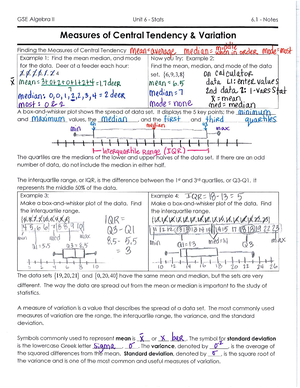 GSE Algebra II Unit 6 - Stats 6.1 - Notes
Measures of Central Tendency & Variation
Finding the Measures of Central Tendency mean=average median=middle when in order mode=most
Example 1: Find the mean, median, and mode for the data. Deer at a feeder each hour:
median: 0, 0, 1, 2, 2, 3, 4 = 2 deer
Now you Try: Example 2:
Find the mean, median, and mode of the data set. {6,9,3,8}
median = 7
mode = none
on calculator
data L1: enter values
2nd data 2: 1-Var Stat
x̄ = mean
med = median
A box-and-whisker plot shows the spread of data set. It displays the 5 key points: the minimum
and maximum values, the median, and the first and third quartiles
min
median
max
Interquartile Range (IQR)
The quartiles are the medians of the lower and upper halves of the data set. If there are an odd
number of data, do not include the median in either half.
The interquartile range, or IQR, is the difference between the 1st and 3rd quartiles, or Q3-Q1. It
represents the middle 50% of the data.
Example 3:
Make a box-and-whisker plot of the data. Find
the interquartile range.
IQR =
Q3-Q1
8.5 - 5.5
= 3
Example 4: IQR = 18-13 = 5
Make a box-and-whisker plot of the data. Find
the interquartile range.
Q1=13
10 12 14 16 18 20 22 24 26
The data sets {19,20,21} and {0,20,40} have the same mean and median, but the sets are very
different. The way the data are spread out from the mean or median is important to the study of
statistics.
A measure of variation is a value that describes the spread of a data set. The most commonly used
measures of variation are the range, the interquartile range, the variance, and the standard
deviation.
Symbols commonly used to represent mean is x̄ or x bar. The symbol for standard deviation
is the lowercase Greek letter sigma σ. The variance, denoted by σ², is the average of
the squared differences from the mean. Standard deviation, denoted by σ, is the square root of
the variance and is one of the most common and useful measures of variation.